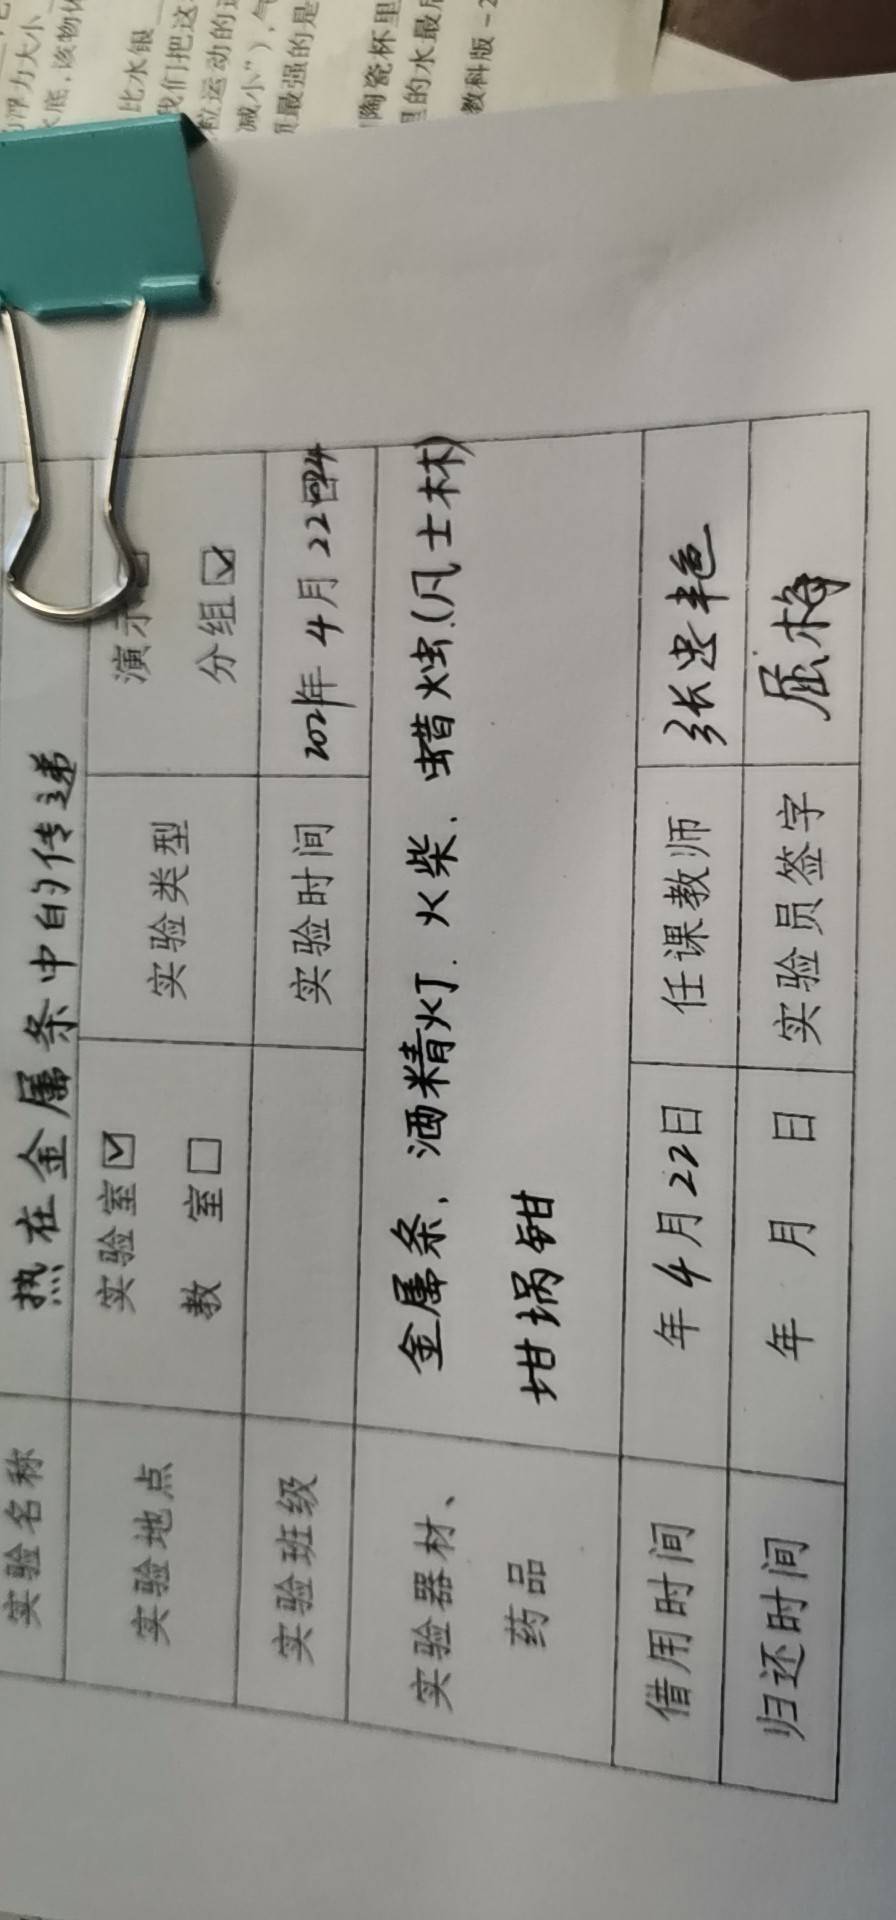 浮力大小
水底，该物体
比水银
我们把这
粒运动的
减小”)，气
最强的是
陶瓷杯里
里的水最后
教科版-2
实验名称 热在金属条中的传递
实验地点 实验室☑ 实验类型 演示
教 室□ 分组☑
实验班级 实验时间 2021年4月22日
实验器材、 金属条，酒精灯、火柴、蜡烛(凡士林)
药品 坩埚钳
借用时间 年4月22日 任课教师 张忠艳
归还时间 年 月 日 实验员签字 屈梅